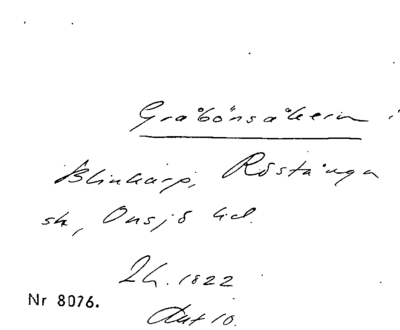 Gråbönsåkern i
Blinkarp, Röstånga
sk, Onsjö hd.
Lh. 1822
Nr 8076.
Akt 10.